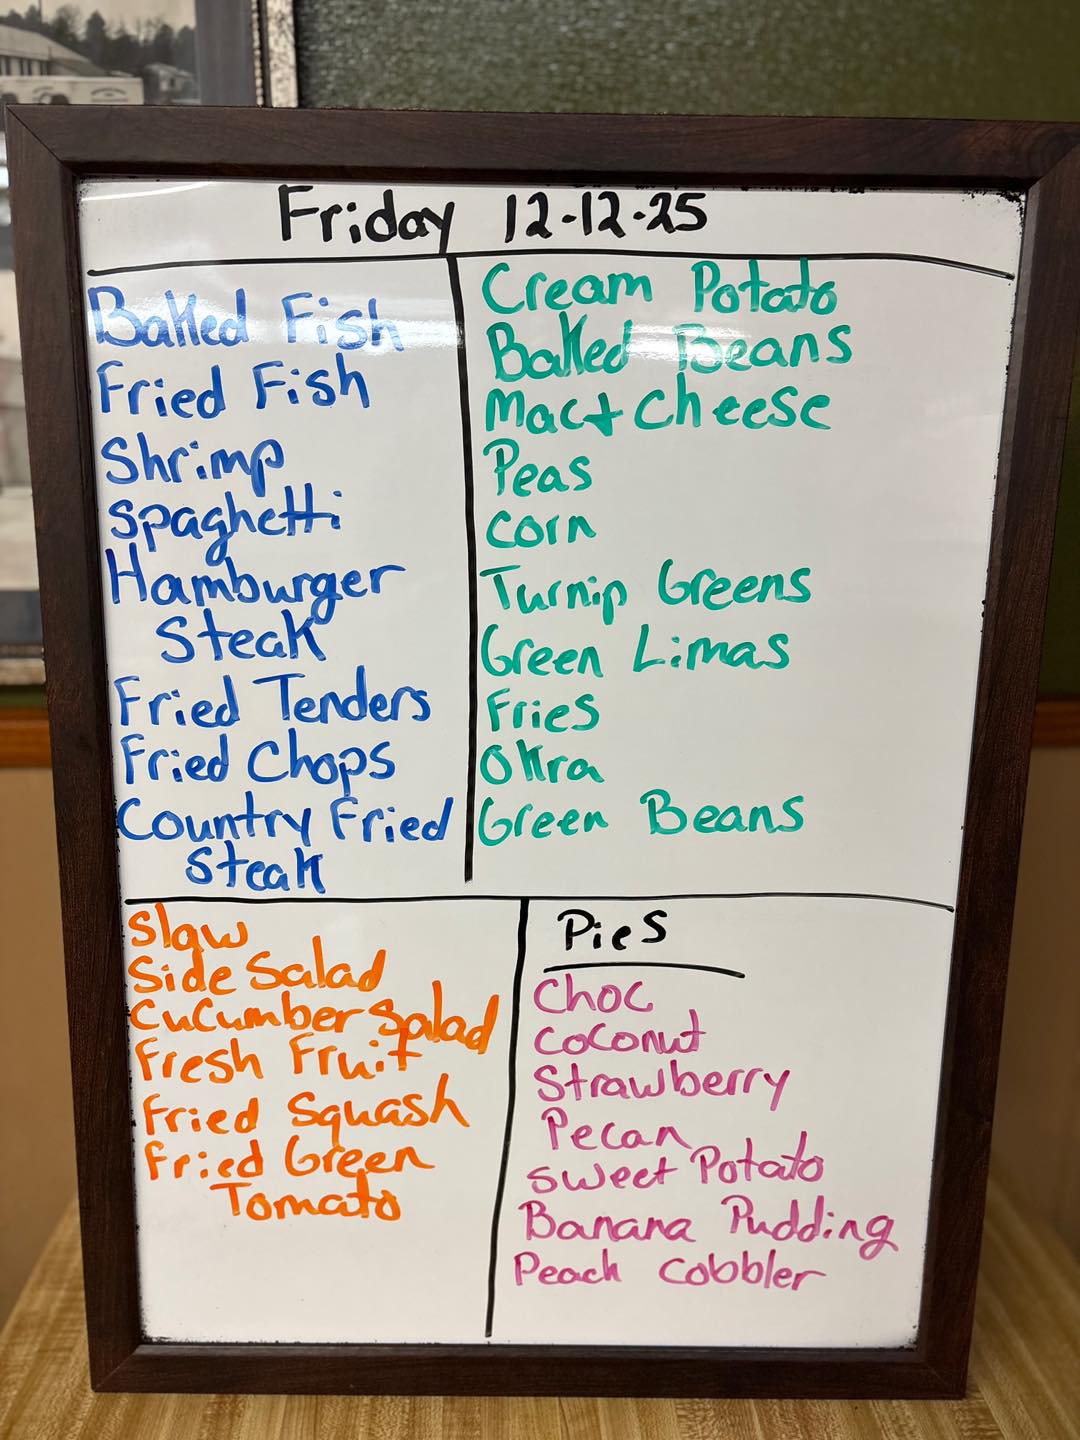 Friday 12-12-25
Baked Fish
Fried Fish
Shrimp
Spaghetti
Hamburger
Steak
Fried Tenders
Fried Chops
Country Fried
Steak
Cream Potato
Baked Beans
Mac + Cheese
Peas
Corn
Turnip Greens
Green Limas
Fries
Okra
Green Beans
Slaw
Side Salad
Cucumber Salad
Fresh Fruit
Fried Squash
Fried Green
Tomato
Pies
Choc
Coconut
Strawberry
Pecan
Sweet Potato
Banana Pudding
Peach Cobbler